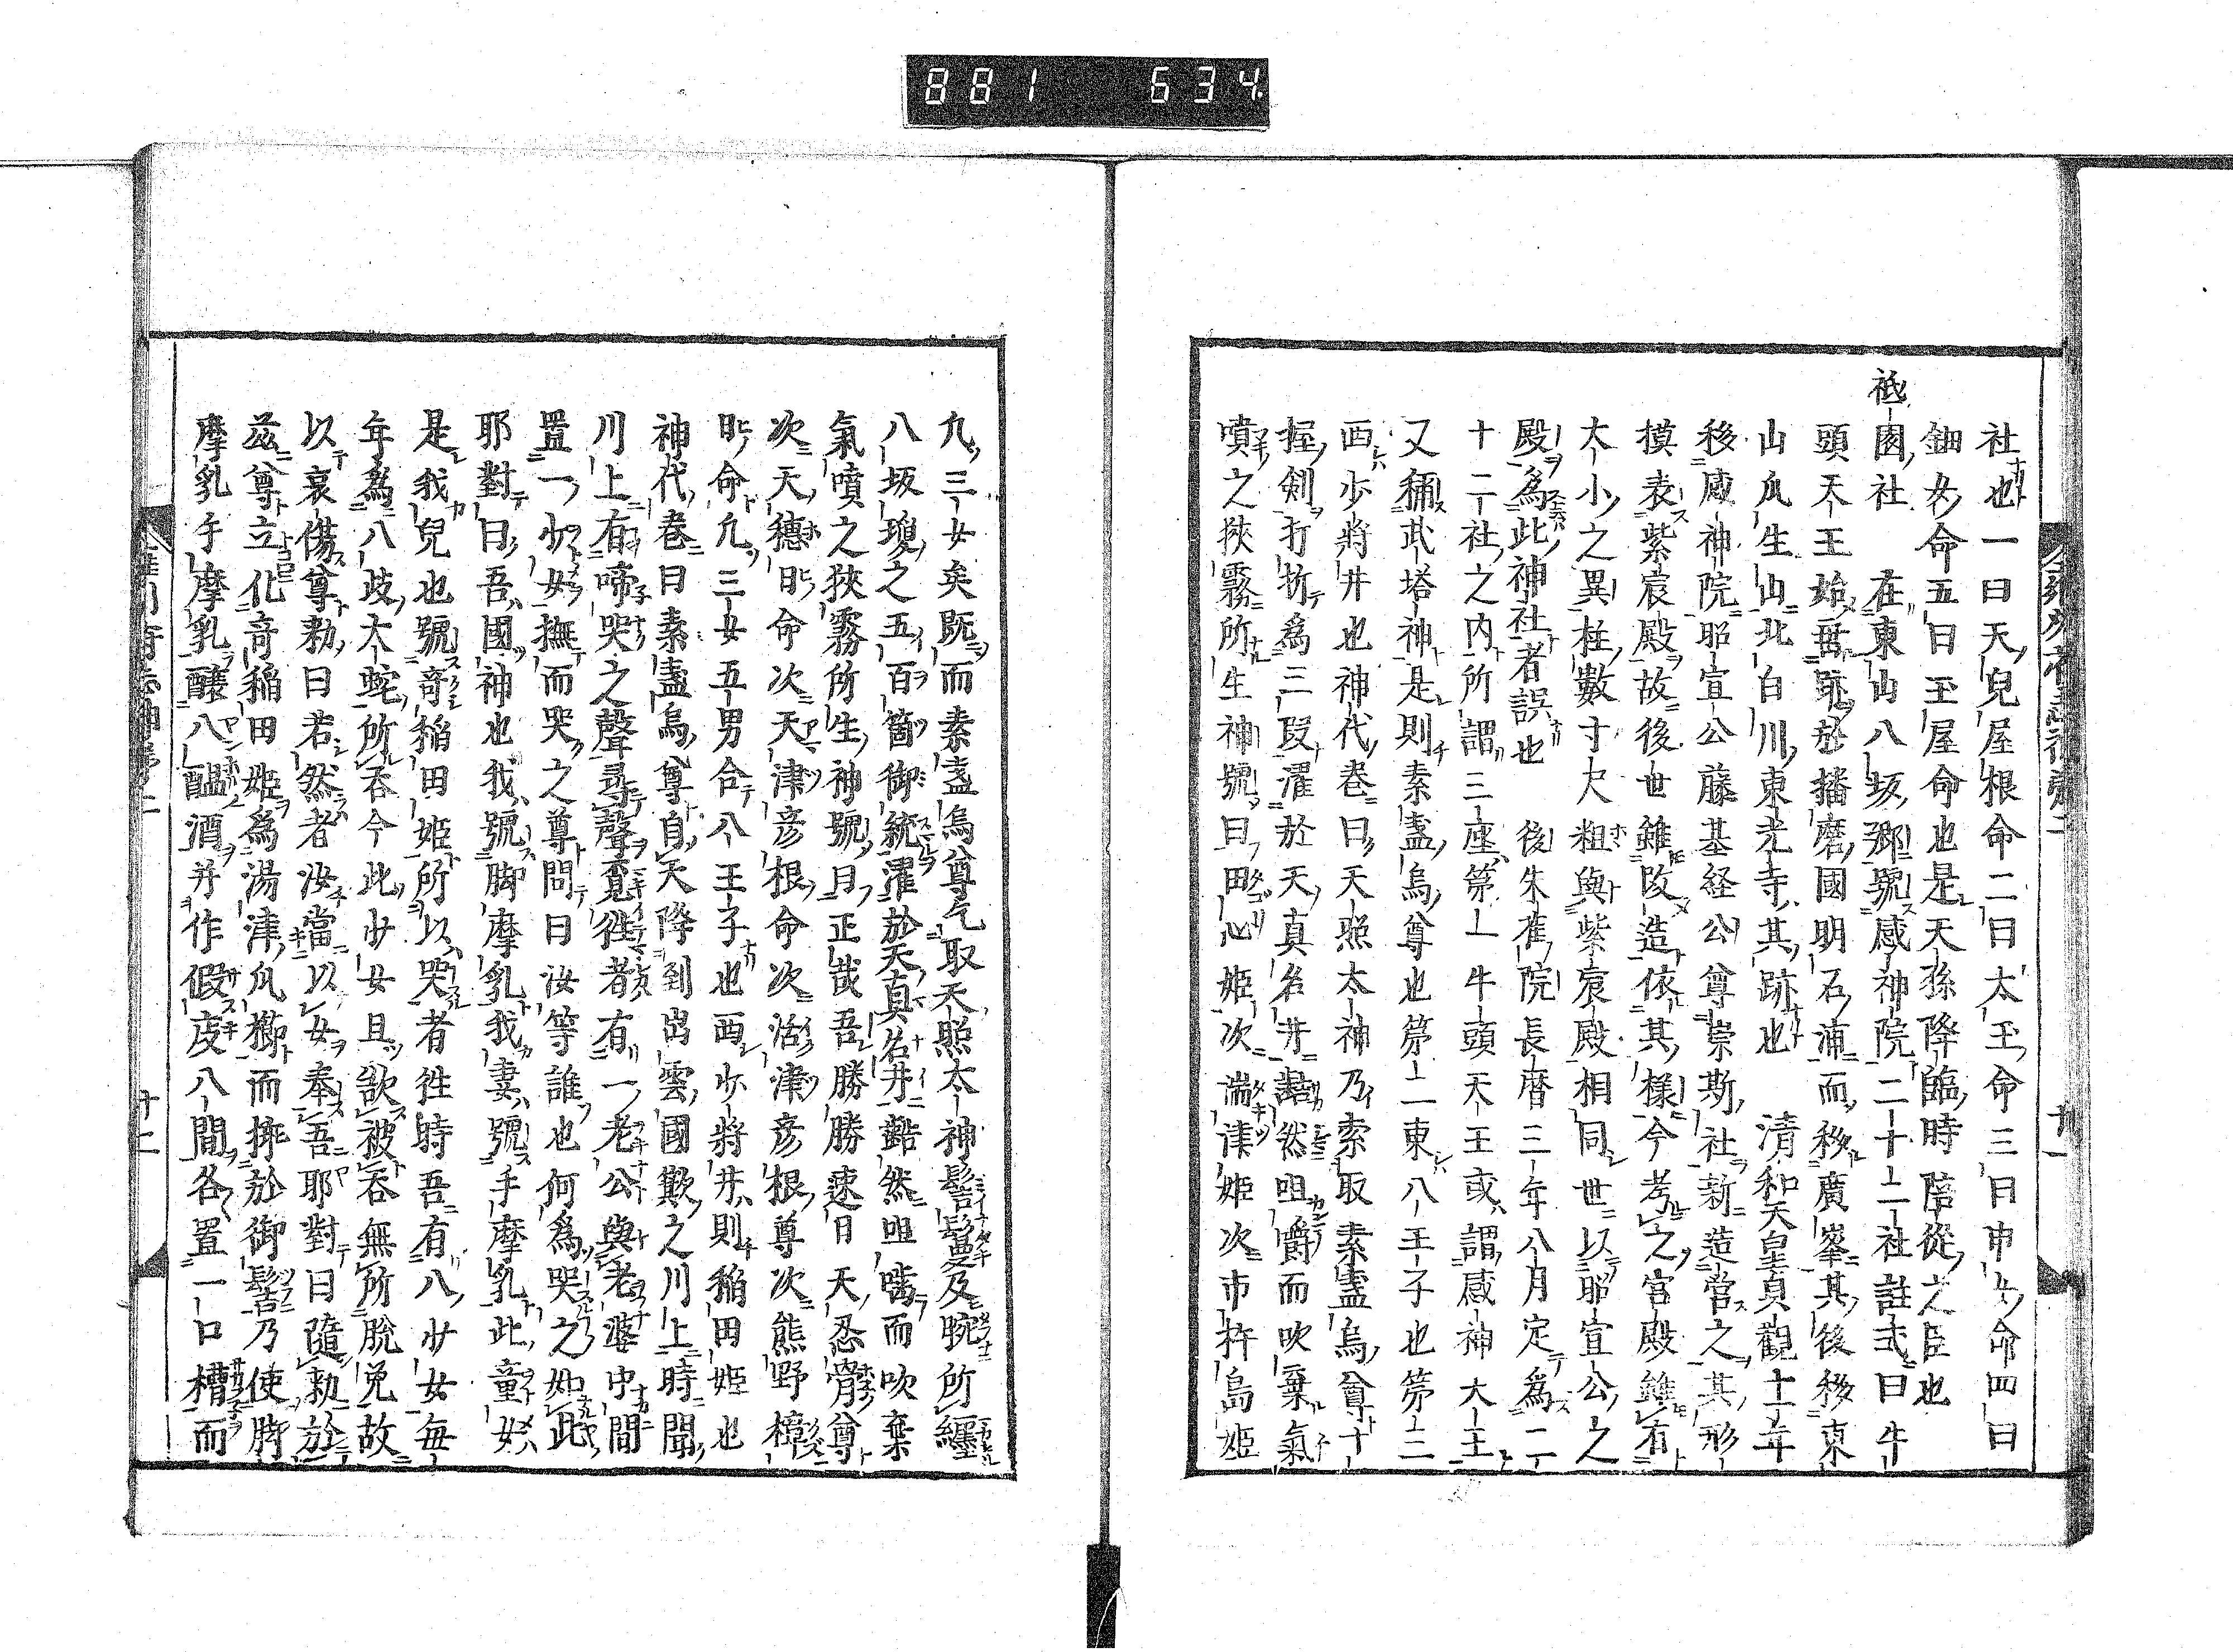 881 634
社也一曰天兒屋根命二曰太玉命三曰天
鈿女命五曰玉屋命也是天孫降臨時陪從之臣也
祗園社 在東山八坂鄉號感神院二十二社註式曰牛
頭天王始垂跡於播磨國明石浦而移廣峯其後移東
山瓜生山北白川東光寺其跡也 清和天皇貞觀十一年
移感神院昭宣公藤基経公尊崇斯社新造営之其形
摸表紫宸殿故後世雖改造依其樣今考之宮殿雖有
大小之異柱數寸尺粗與紫宸殿相同世以昭宣公之
殿為此神社者誤也 後朱雀院長曆三年八月定為二
十二社之內所謂三座第一牛頭天王或謂感神大王
又稱武塔神是則素盞烏尊也第二東八王子也第三
西少将井也神代卷曰天照太神乃索取素盞烏尊十
握剣打折為三段濯於天真名井𪗾然咀嚼而吹棄氣
噴之狹霧所生神號曰田心姬次湍津姬次市杵島姬
凢三女矣既而素盞烏尊乞取天照太神髻鬘及腕所纏
八坂瓊之五百箇御統濯於天真名井𪗾然咀嚼而吹棄
氣噴之狹霧所生神號曰正哉吾勝勝速日天忍骨尊
次天穗日命次天津彦根命次活津彦根尊次熊野樟
日命凢三女五男合八王子也西少将井則稲田姬也
神代卷曰素盞烏尊自天降到出雲國簸之川上時聞
川上有啼哭之聲尋聲覓往者有一老公與老婆中間
置一少女撫而哭之尊問曰汝等誰也何為哭之如此
耶對曰吾國神也我號脚摩乳我妻號手摩乳此童女
是我兒也號竒稲田姬所以哭者往時吾有八少女毎
年為八歧大蛇所吞今此少女且欲被吞無所脫免故
以哀傷尊勅曰若然者汝當以女奉吾耶對曰隨勅於
茲尊立化竒稲田姬為湯津爪櫛而挿於御髻乃使脚
摩乳手摩乳釀八醞酒并作假庪八間各置一口槽而